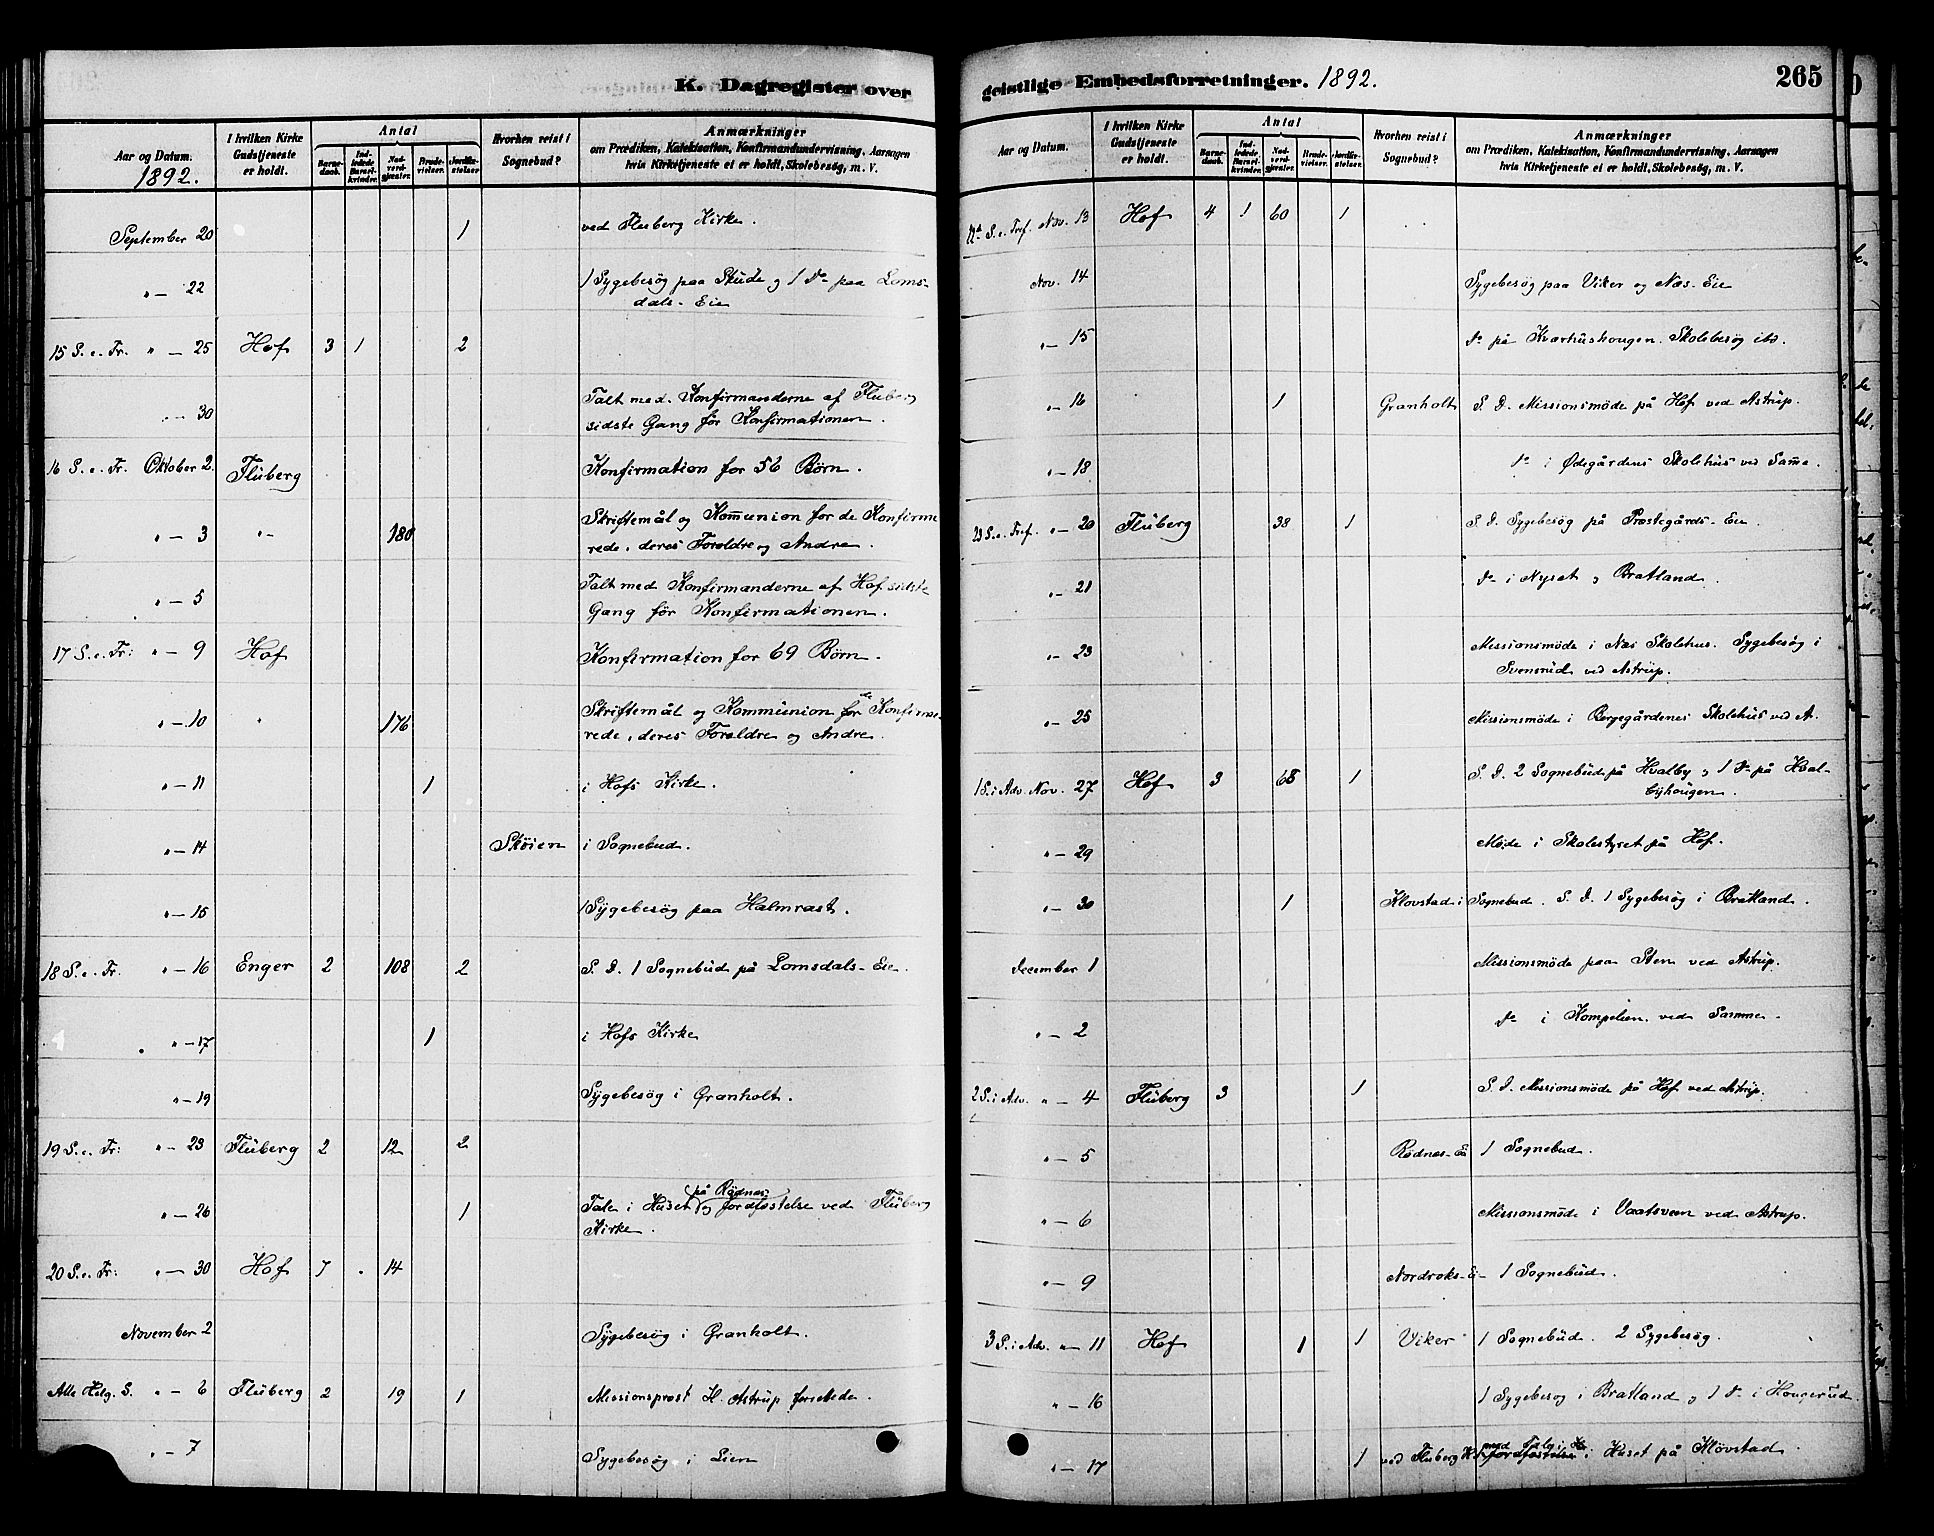 K. Dagregister over
Aar og Datum.
1892.
I hvilken Kirke Gudstjeneste er holdt.
Antal
Barnedaab.
Indledede Barselkvinder.
Nadverdgjæster.
Brudevielser.
Jordfæstelser.
Hvorhen reist i Sognebud?
Anmærkninger
om Prædiken, Katekisation, Konfirmandundervisning, Aarsagen
hvis Kirketjeneste ei er holdt, Skolebesøg, m. V.
September 20 1 ved Fluberg Kirke.
" — 22 1 Sygebesög paa Skude og 1 do paa Loms-
dals-Eie
15 S. e. Tr. " — 25 Hof 3 1 2
" — 30 Talt med Konfirmanderne af Fluberg
sidste Gang før Konfirmationen.
16 S. e. Tr. Oktober 2. Fluberg Konfirmation for 56 Børn.
" — 3 "- 180 Skriftemål og Kommunion for de Konfirme
rede, deres Forældre og Andre.
" — 5 Talt med Konfirmanderne af Hof sidste
Gang før Konfirmationen.
17 S. e. Tr: " — 9 Hof Konfirmation for 69 Børn.
" — 10 " 176 Skriftemål og Kommunion for de Konfirme-
rede, deres Forældre og Andre.
" — 11 1 i Hofs Kirke.
" — 14 Skøien i Sognebud.
" — 15 1 Sygebesøg paa Halmrast.
18 S. e. Tr. " — 16 Enger 2 108 2 S. D. 1 Sognebud på Lomsdals-Eie.
" — 17 1 i Hofs Kirke
" — 19 Sygebesøg i Granholt.
19 S. e. Tr: " — 23 Fluberg 2 12 2
" — 26 1 Tale i Huset på Rødnæs og Jordfæstelse ved Fluberg
Kirke.
20 S. e. Tr: " — 30 Hof 7 . 14
November 2 Sygebesøg i Granholt.
Alle Helg. S. " — 6 Fluberg 2 19 1 Missionsprest H. Astrup forrettede.
" — 7 Sygebesøg i Lien
geistlige Embedsforretninger. 1892.
265
Aar og Datum.
I hvilken Kirke Gudstjeneste er holdt.
Antal
Barnedaab.
Indledede Barselkvinder.
Nadverdgjæster.
Brudevielser.
Jordfæstelser.
Hvorhen reist i Sognebud?
Anmærkninger
om Prædiken, Katekisation, Konfirmandundervisning, Aarsagen
hvis Kirketjeneste ei er holdt, Skolebesøg, m. V.
22d S. e. Tref. Nov. 13 Hof 4 1 60 1
Nov. 14 Sygebesøg paa Viker og Næs-Eie
" — 15 do på Kværhushougen. Skolebesøg ibd.
" — 16 1 Granholt S. D. Missionsmöde på Hof ved Astrup.
" — 18 do i Ødegårdens Skolehus ved Samme.
23 S. e. Tref. " — 20 Fluberg 38 1 S. D. Sygebesøg på Præstegårds-Eie
" — 21 do i Nyset og Bratland.
" — 23 Missionsmöde i Næs Skolehus. Sygebesøg i
Svensrud ved Astrup.
" — 25 Missionsmöde i Bergegårdenes Skolehus ved A.
1 S. i Adv. Nov. 27 Hof 3 68 1 S. D. 2 Sognebud på Hvalby og 1 do på Hval-
byhougen.
" — 29 Møde i Skolestyret på Hof.
" — 30 1 Klovstad i Sognebud. S. D. 1 Sygebesøg i Bratland.
December 1 Missionsmöde paa Sten ved Astrup.
" — 2 do i Kompelien ved Samme.
2 S. i Adv. " — 4 Fluberg 3 1 S. D. Missionsmöde på Hof ved Astrup.
" — 5 Rødnæs-Ei 1 Sognebud.
" — 6 Missionsmöde i Vaatsveen ved Astrup.
" — 9 Nordroks-Ei- 1 Sognebud.
3 S. i Adv. " — 11 Hof 1 1 Viker 1 Sognebud. 2 Sygebesøg.
" — 16 1 Sygebesøg i Bratland og 1 do i Hougerud
" — 17 1 ved Fluberg K. med Tale i Huset på Kløvstad.